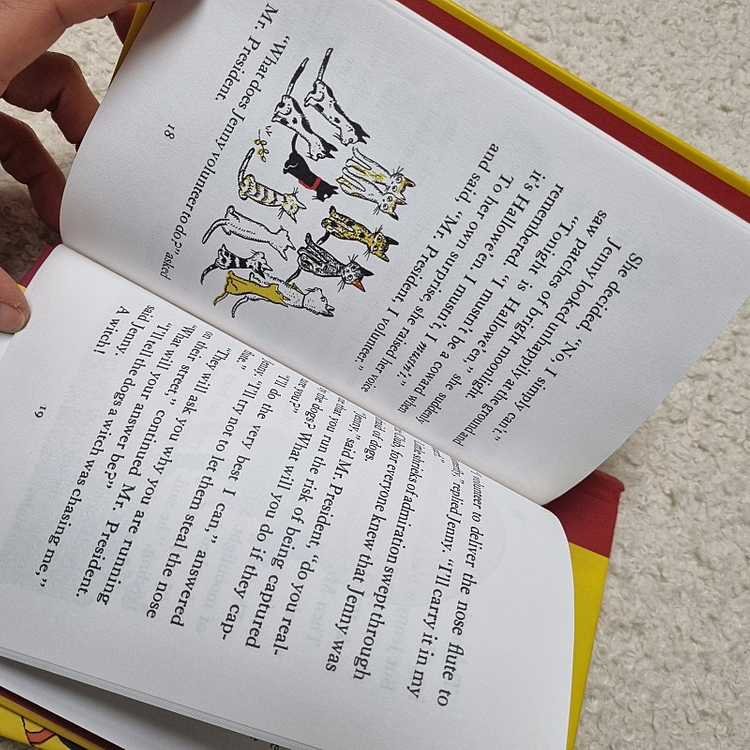 She decided, "No, I simply can't."
Jenny looked unhappily at the ground and
saw patches of bright moonlight.
"Tonight is Hallowe'en," she suddenly
remembered. "I mustn't be a coward when
it's Hallowe'en. I mustn't, I mustn't!"
To her own surprise, she raised her voice
and said, "Mr. President, I volunteer."
"What does Jenny volunteer to do?" asked
Mr. President.
18
volunteer to deliver the nose flute to
replied Jenny. "I'll carry it in my
shrieks of admiration swept through
Club, for everyone knew that Jenny was
of dogs.
Jenny," said Mr. President, "do you real-
that you run the risk of being captured
the dogs? What will you do if they cap-
you?"
"I'll do the very best I can," answered
Jenny. "I'll try not to let them steal the nose
flute."
"They will ask you why you are running
on their street," continued Mr. President.
"What will your answer be?"
"I'll tell the dogs a witch was chasing me,"
said Jenny.
A witch!
19